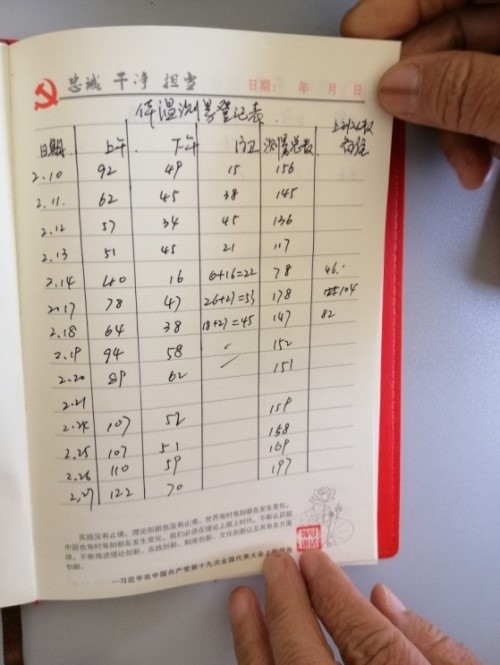 忠诚 干净 担当
日期: 年 月 日
体温测量登记表
日期 上午 下午 门卫 测温总数
2.10 92 49 15 156
2.11. 62 45 38 145
2.12 57 34 45 136
2.13 51 45 21 117
2.14 40 16 6+16=22 78 46.
2.17 78 47 26+27=53 178 104
2.18 64 38 18+27=45 147 82
2.19 94 58 152
2.20 89 62 151
2.21
2.24 107 52 159
2.25 107 51 158
2.26 110 59 169
2.27 122 70 197
实践没有止境，理论创新也没有止境。世界每时每刻都在发生变化，
中国也每时每刻都在发生变化，我们必须在理论上跟上时代，不断认识规
律，不断推进理论创新、实践创新、制度创新、文化创新以及其他各方面
创新。
—习近平在中国共产党第十九次全国代表大会上的报告